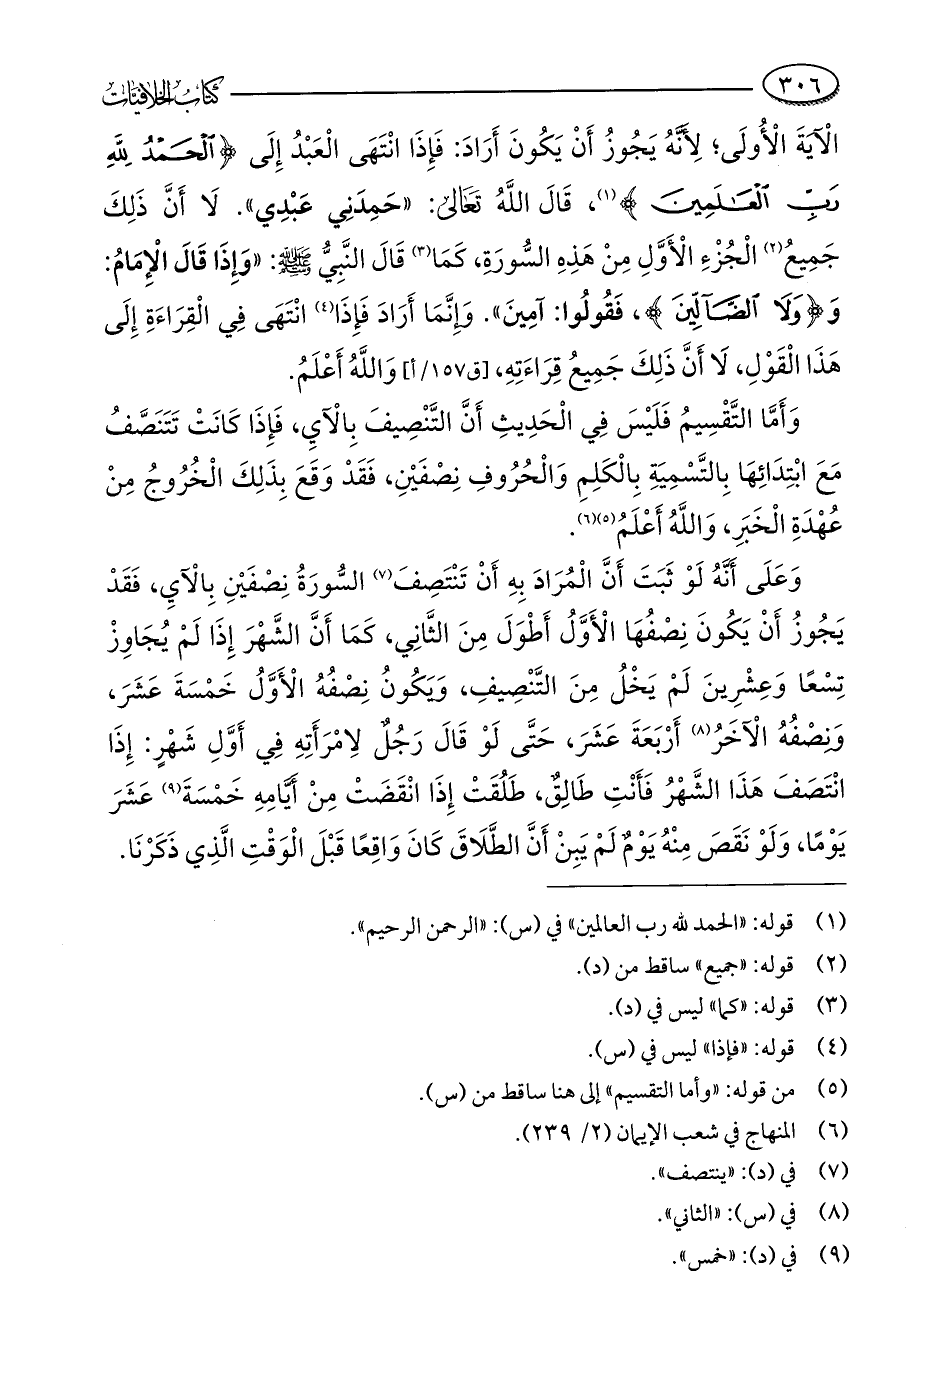 ٣٠٦ كتاب الخلافيات
الْآيَةَ الْأُولَى؛ لِأَنَّهُ يَجُوزُ أَنْ يَكُونَ أَرَادَ: فَإِذَا انْتَهَى الْعَبْدُ إِلَى ﴿ٱلْحَمْدُ لِلَّهِ
رَبِّ ٱلْعَـٰلَمِينَ﴾(١)، قَالَ اللَّهُ تَعَالَى: «حَمِدَنِي عَبْدِي». لَا أَنَّ ذَلِكَ
جَمِيعُ(٢) الْجُزْءِ الْأَوَّلِ مِنْ هَذِهِ السُّورَةِ، كَمَا(٣) قَالَ النَّبِيُّ ﷺ: «وَإِذَا قَالَ الْإِمَامُ:
وَ﴿وَلَا ٱلضَّآلِّينَ﴾، فَقُولُوا: آمِينَ». وَإِنَّمَا أَرَادَ فَإِذَا(٤) انْتَهَى فِي الْقِرَاءَةِ إِلَى
هَذَا الْقَوْلِ، لَا أَنَّ ذَلِكَ جَمِيعُ قِرَاءَتِهِ، [ق١٥٧/أ] وَاللَّهُ أَعْلَمُ.
وَأَمَّا التَّقْسِيمُ فَلَيْسَ فِي الْحَدِيثِ أَنَّ التَّنْصِيفَ بِالْآيِ، فَإِذَا كَانَتْ تَتَنَصَّفُ
مَعَ ابْتِدَائِهَا بِالتَّسْمِيَةِ بِالْكَلِمِ وَالْحُرُوفِ نِصْفَيْنِ، فَقَدْ وَقَعَ بِذَلِكَ الْخُرُوجُ مِنْ
عُهْدَةِ الْخَبَرِ، وَاللَّهُ أَعْلَمُ(٥)(٦).
وَعَلَى أَنَّهُ لَوْ ثَبَتَ أَنَّ الْمُرَادَ بِهِ أَنْ تَنْتَصِفَ(٧) السُّورَةُ نِصْفَيْنِ بِالْآيِ، فَقَدْ
يَجُوزُ أَنْ يَكُونَ نِصْفُهَا الْأَوَّلُ أَطْوَلَ مِنَ الثَّانِي، كَمَا أَنَّ الشَّهْرَ إِذَا لَمْ يُجَاوِزْ
تِسْعًا وَعِشْرِينَ لَمْ يَخْلُ مِنَ التَّنْصِيفِ، وَيَكُونُ نِصْفُهُ الْأَوَّلُ خَمْسَةَ عَشَرَ،
وَنِصْفُهُ الْآخَرُ(٨) أَرْبَعَةَ عَشَرَ، حَتَّى لَوْ قَالَ رَجُلٌ لِامْرَأَتِهِ فِي أَوَّلِ شَهْرٍ: إِذَا
انْتَصَفَ هَذَا الشَّهْرُ فَأَنْتِ طَالِقٌ، طَلُقَتْ إِذَا انْقَضَتْ مِنْ أَيَّامِهِ خَمْسَةَ(٩) عَشَرَ
يَوْمًا، وَلَوْ نَقَصَ مِنْهُ يَوْمٌ لَمْ يَبِنْ أَنَّ الطَّلَاقَ كَانَ وَاقِعًا قَبْلَ الْوَقْتِ الَّذِي ذَكَرْنَا.
(١) قوله: «الحمد لله رب العالمين» في (س): «الرحمن الرحيم».
(٢) قوله: «جميع» ساقط من (د).
(٣) قوله: «كما» ليس في (د).
(٤) قوله: «فإذا» ليس في (س).
(٥) من قوله: «وأما التقسيم» إلى هنا ساقط من (س).
(٦) المنهاج في شعب الإيمان (٢/ ٢٣٩).
(٧) في (د): «ينتصف».
(٨) في (س): «الثاني».
(٩) في (د): «خمس».